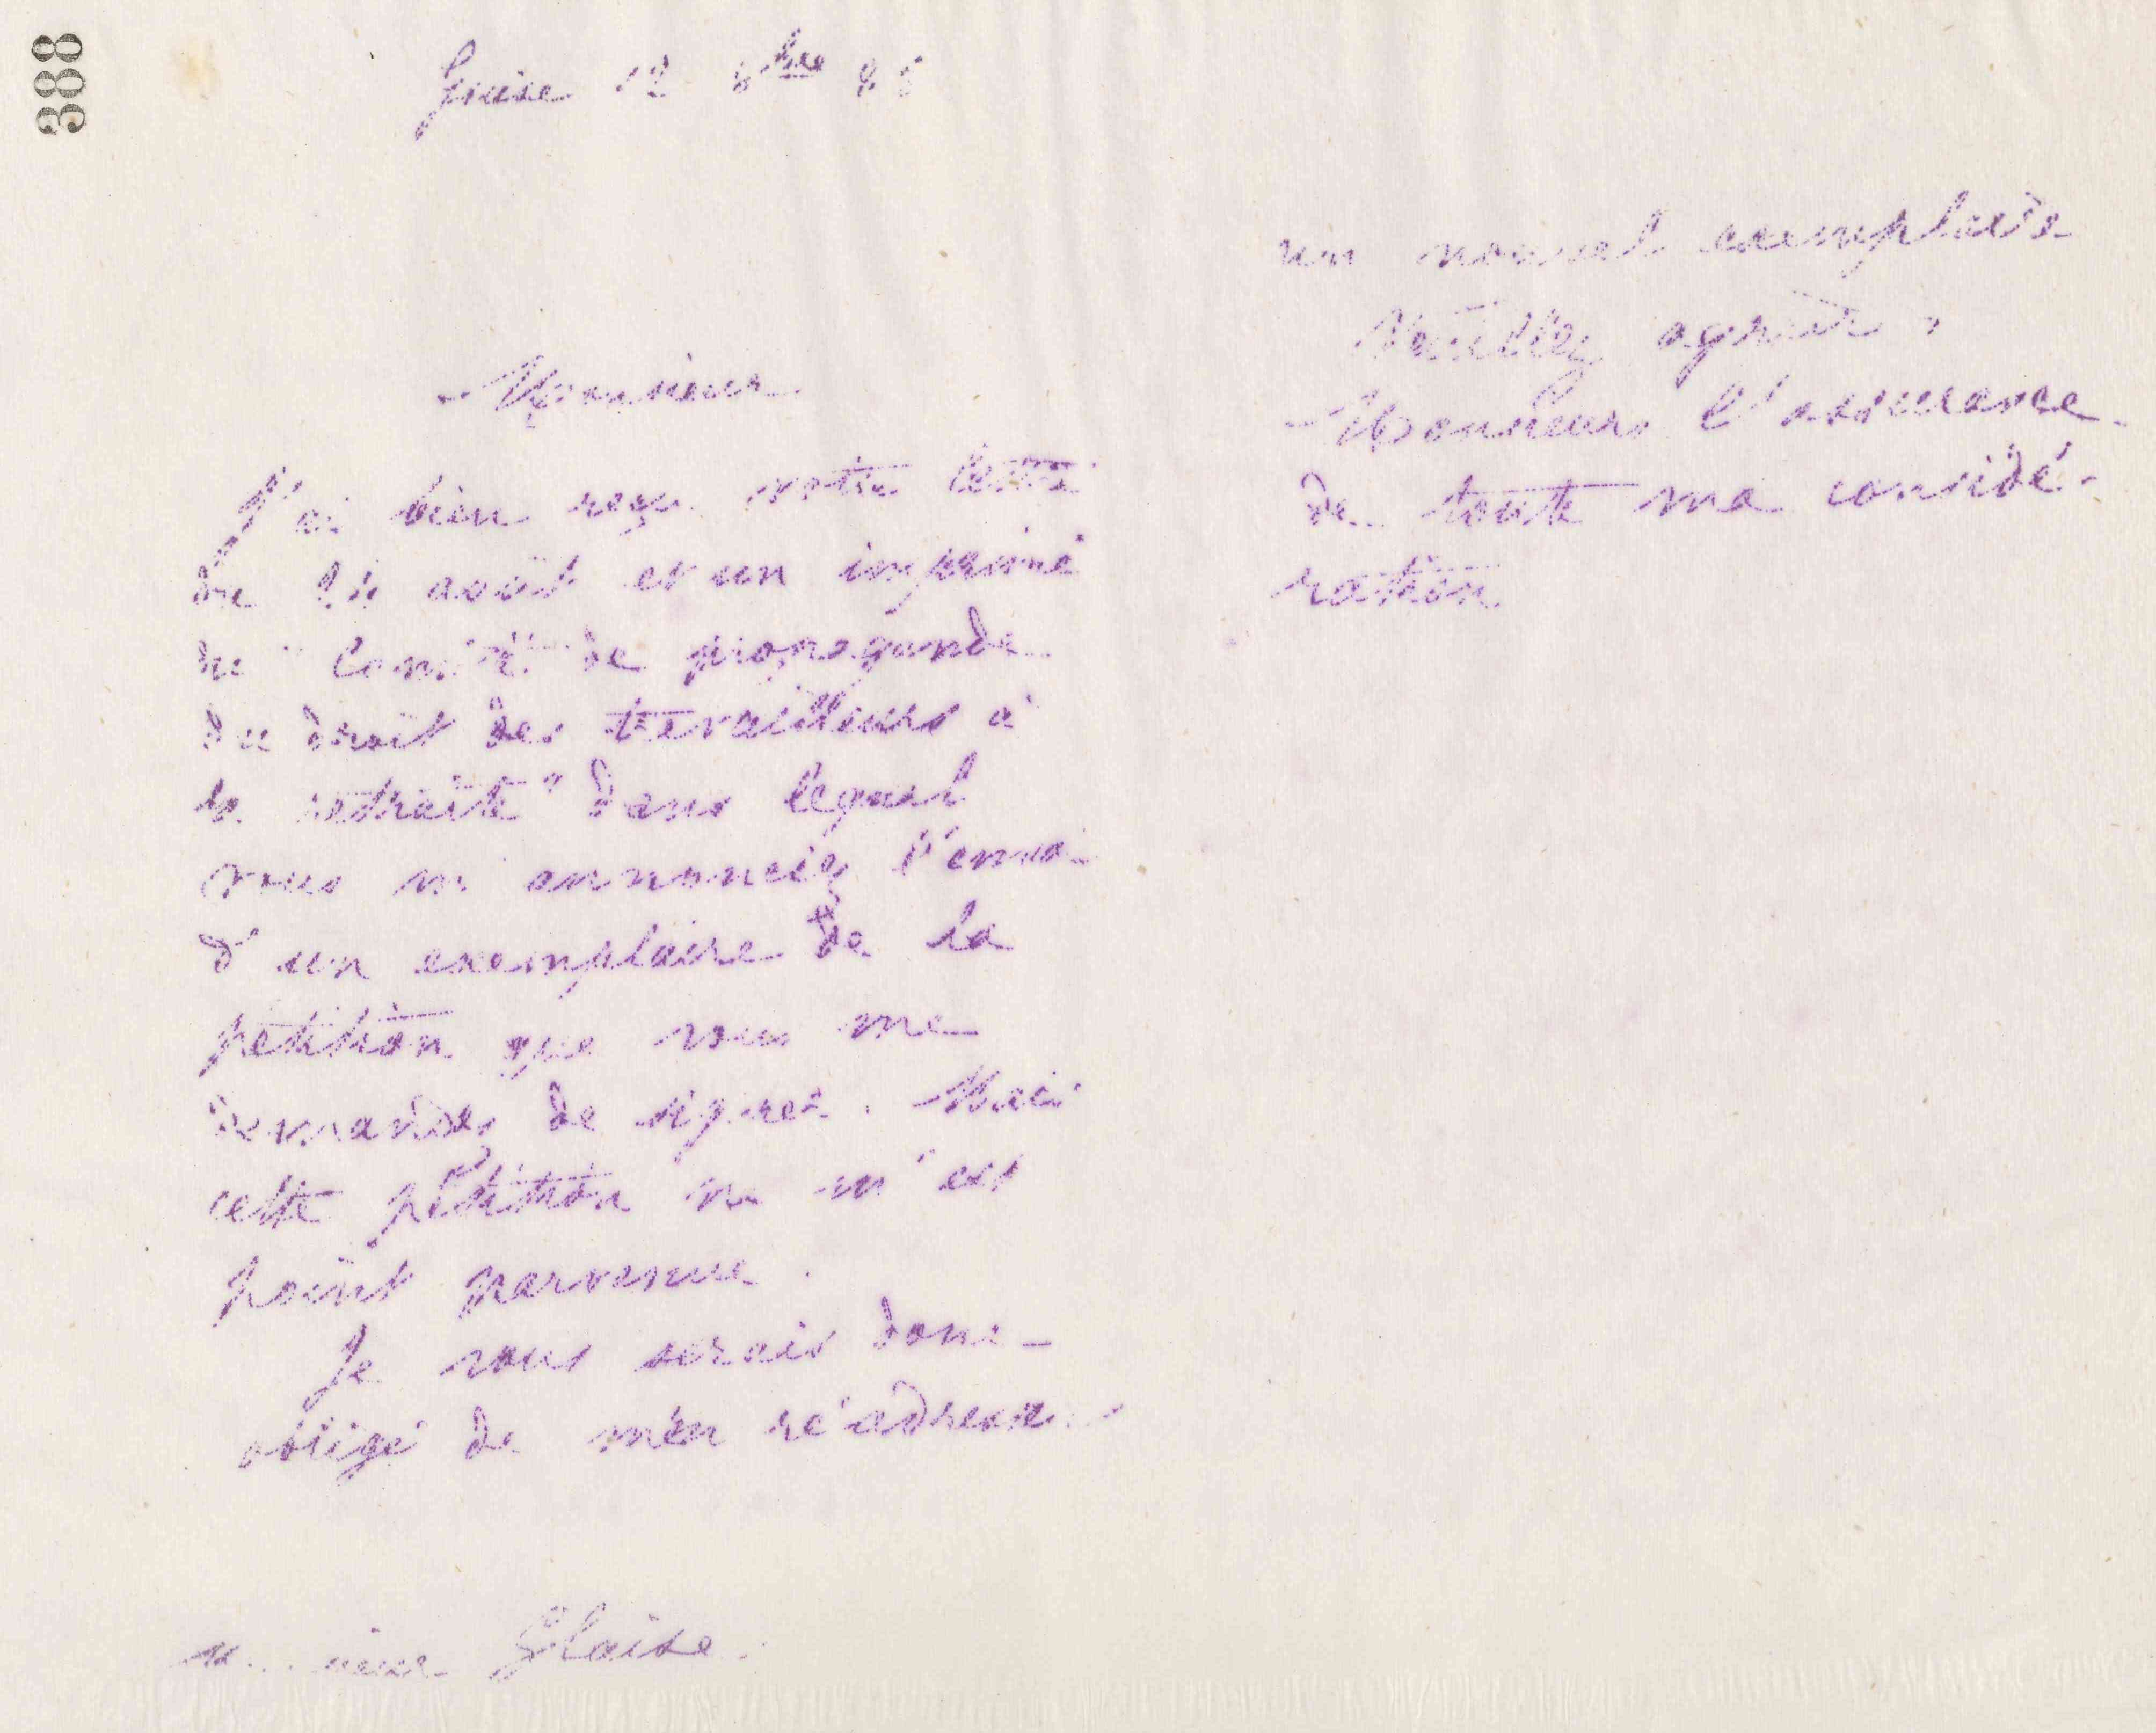 388
Guise 12 8bre 86
Monsieur
J'ai bien reçu votre lettre
du août et un imprimé
du "Comité de propagande
du droit des travailleurs à
la retraite" dans lequel
vous m' annonciez l'envoi
d'un exemplaire de la
pétition que vous me
demandez de signer. Mais
cette pétition ne m'est
point parvenue.
Je vous serais donc
obligé de m'en réadresser
un nouvel exemplaire
Veuillez agréer,
Monsieur l'assurance
de toute ma considé-
ration.
Monsieur Glaise.